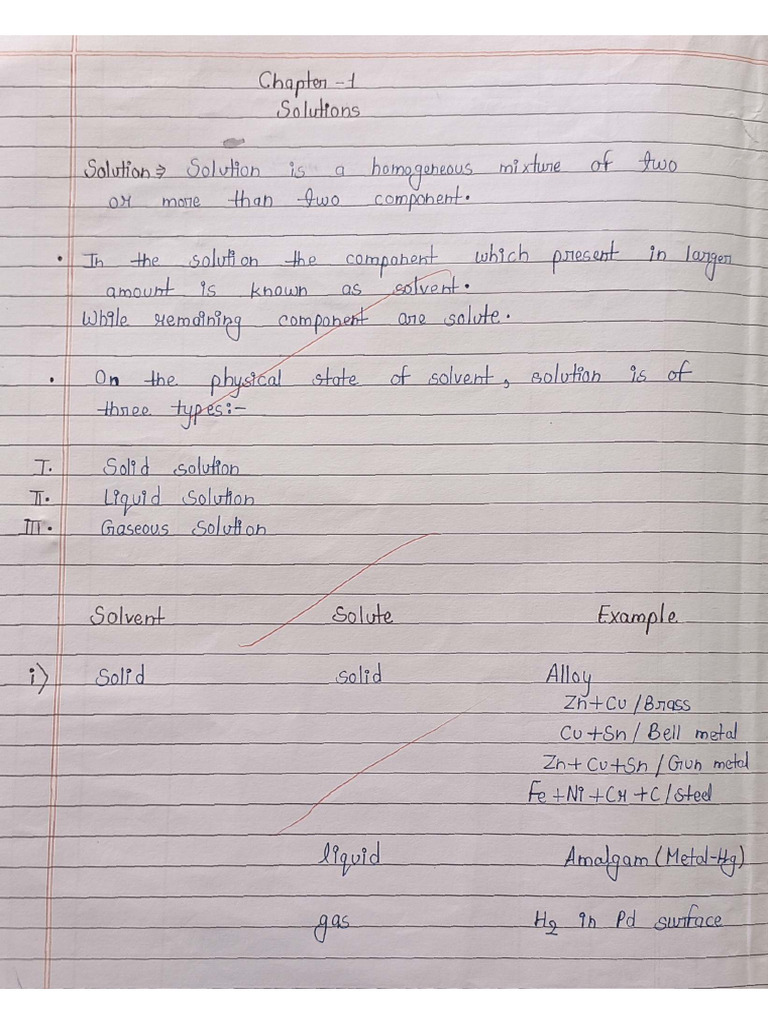 Chapter -1
Solutions
Solution ⇒ Solution is a homogeneous mixture of two
or more than two component.
• In the solution the component which present in larger
amount is known as solvent.
While remaining component are solute.
• On the physical state of solvent, solution is of
three types:-
I. Solid solution
II. Liquid solution
III. Gaseous solution
Solvent Solute Example
i) Solid solid Alloy
Zn+Cu / Brass
Cu+Sn / Bell metal
Zn+Cu+Sn / Gun metal
Fe+Ni+Cr+C/steel
liquid Amalgam (Metal-Hg)
gas H2 in Pd surface